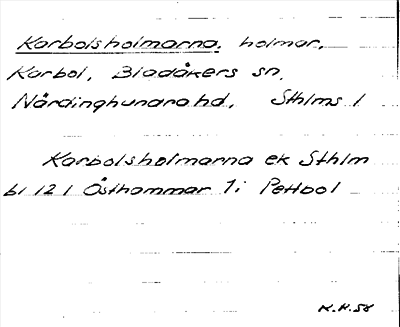 Karbolsholmarna, holmar,
Karbol, Bladåkers sn,
Närdinghundra hd, Sthlms l
Karbolsholmarna ek Sthlm
bl 121 Östhammar 7: Pettbol
K.H. 58